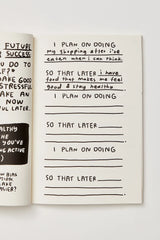 FUTURE
SUCCESS.
OU DO TO
GOOD
STRESSFUL
MAKE AN
NOW
FUL LATER.
I PLAN ON DOING
my shopping after i've
eaten when i can think.
SO THAT LATER i have
food that makes me feel
good & stay healthy
I PLAN ON DOING
SO THAT LATER
I PLAN ON DOING
SO THAT LATER